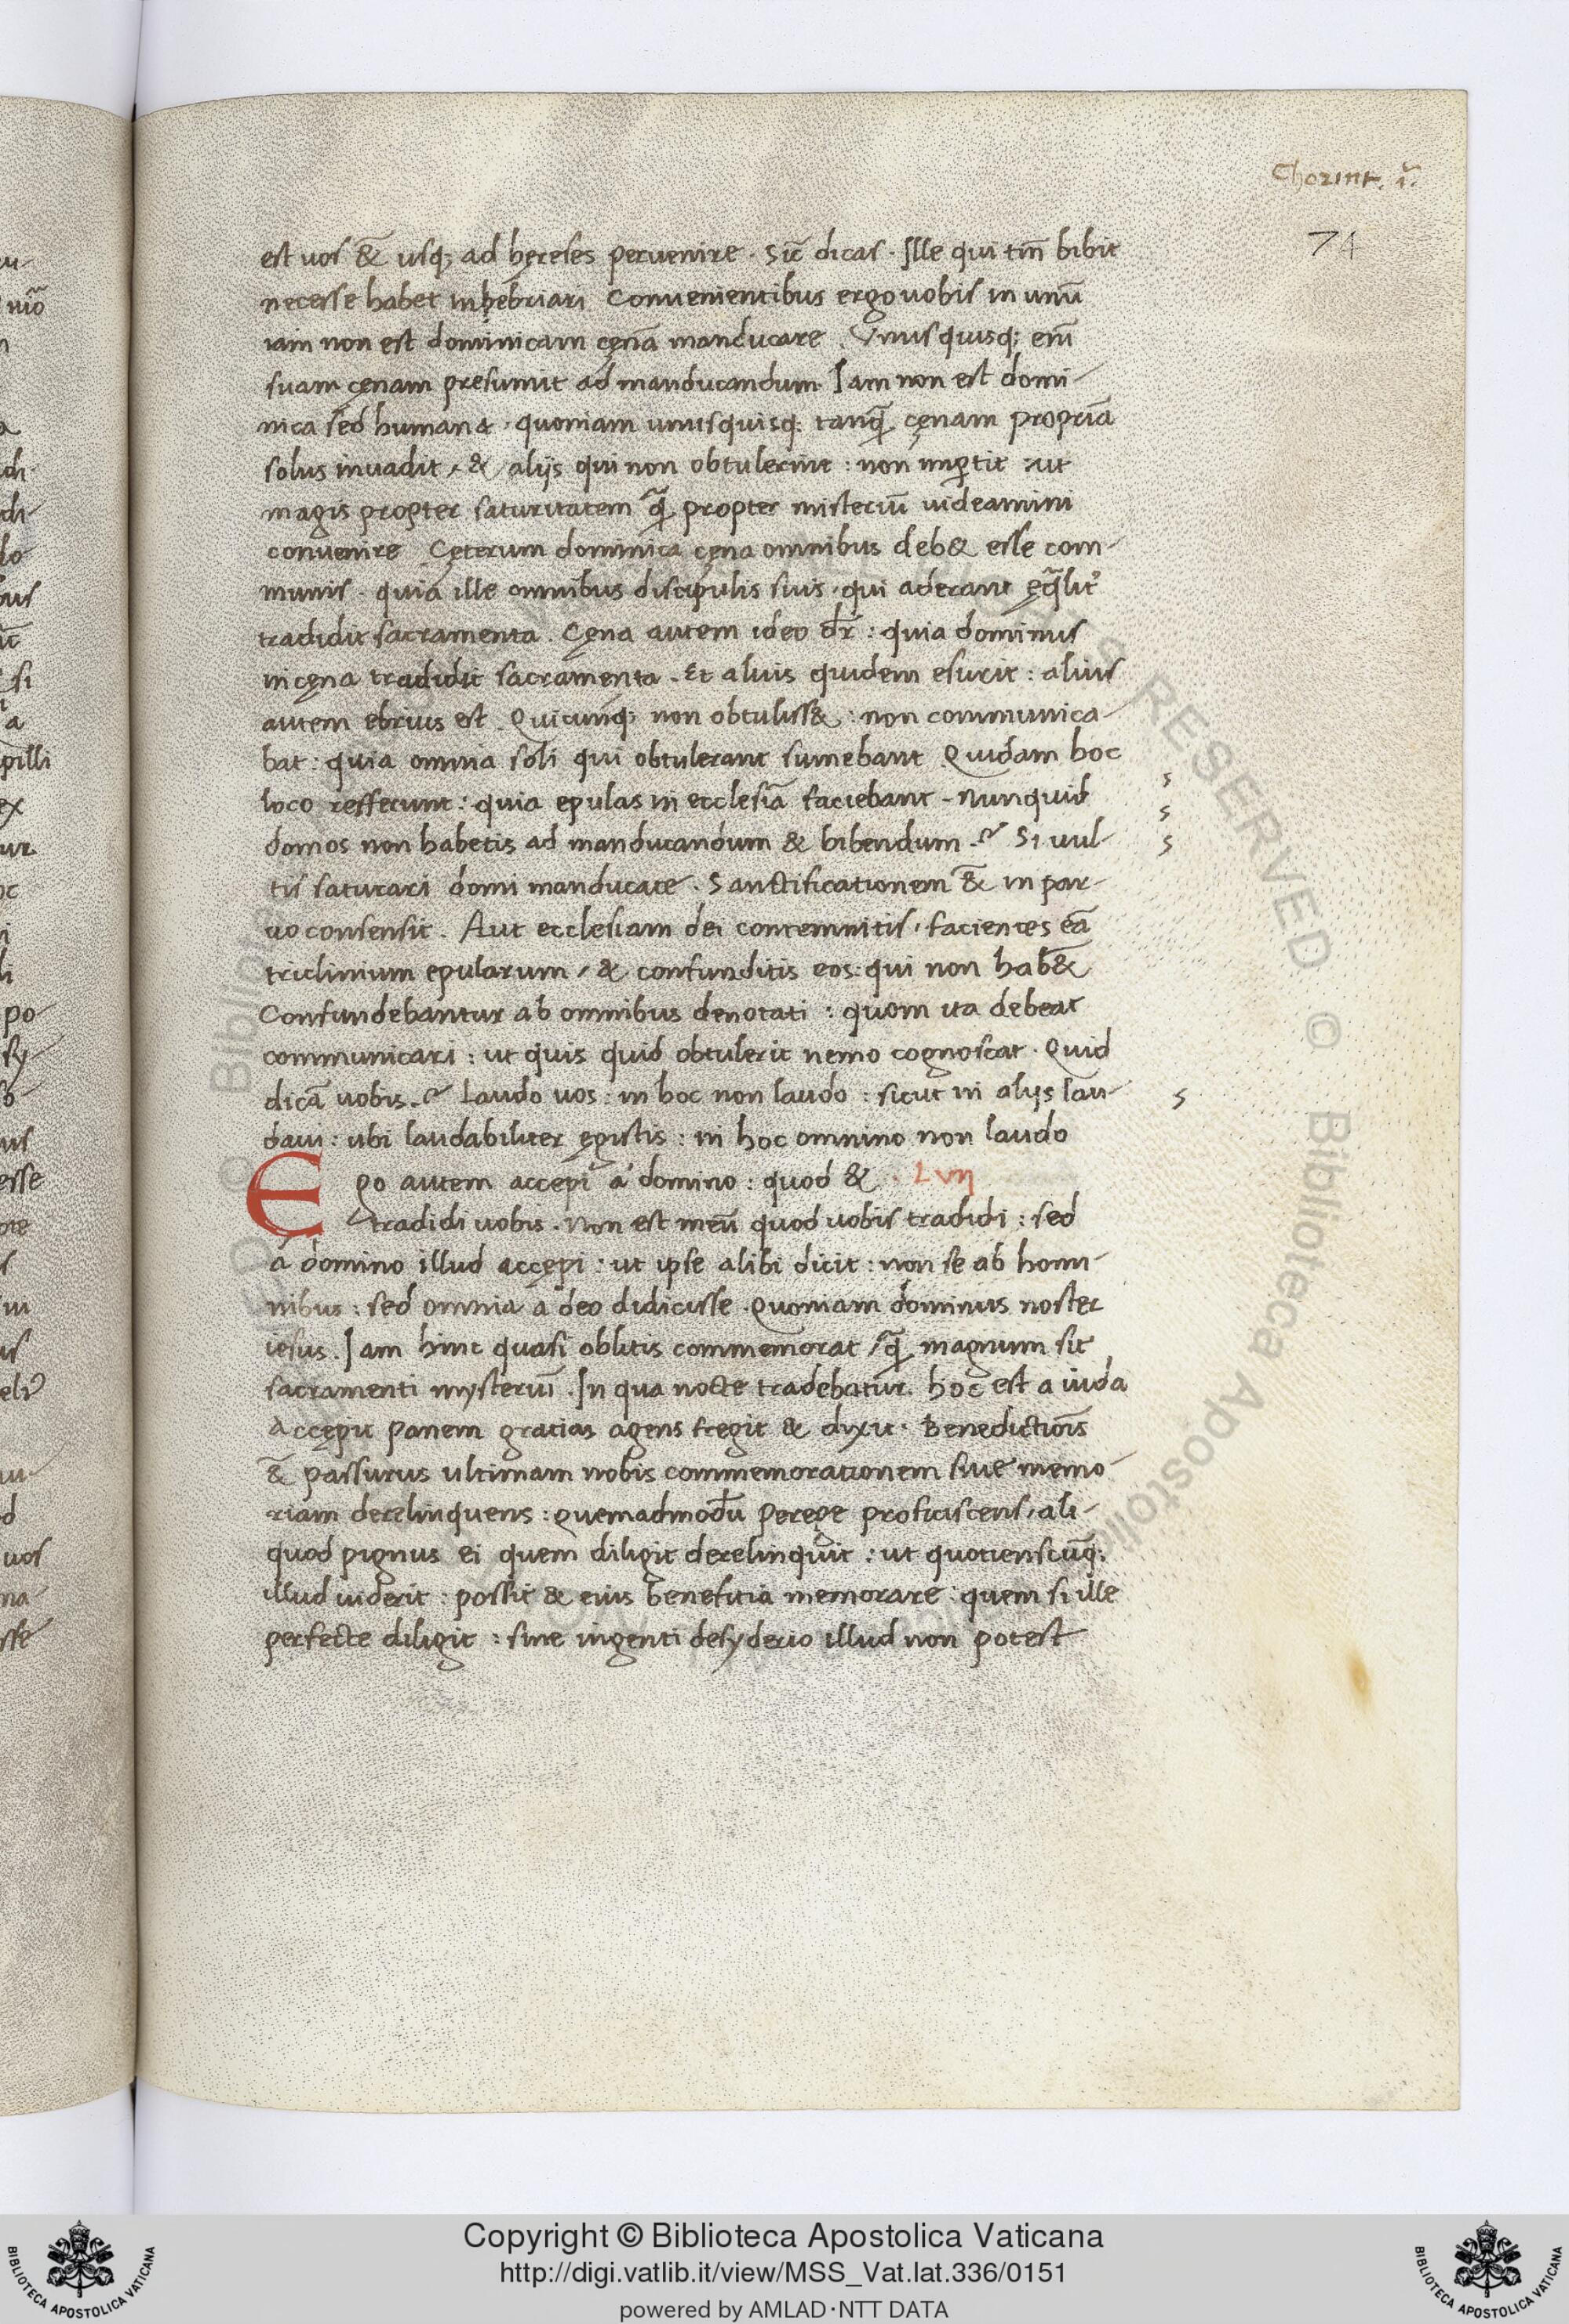 Chorint. i.
74
est vos &̄ usq; ad hęreses pervenire. Sic̄ dicas. Ille qui tm̄ bibit
necesse habet inhebriari Convenientibus ergo vobis in unū
iam non est dominicam cęnā manducare. Unusquisq; eni̅
suam cęnam presumit ad manducandum. Iam non est domi-
nica sed humana. quoniam unusquisq; tanq̄ cęnam propriā
solus invadit, & alijs qui non obtulerint: non impertit: ut
magis propter saturitatem q̄ propter misteriū videamini
convenire Cęterum dominica cęna omnibus deb& esse com-
munis. quia ille omnibus discipulis suis, qui aderant ęq̄lit̛
tradidit sacramenta. Cęna autem ideo dr̄: quia dominus
in cęna tradidit sacramenta. Et alius quidem esurit: alius
autem ebrius est. Quicunq; non obtuliss&: non communica-
bat: quia omnia soli qui obtulerant sumebant. Quidam hoc
loco refferunt: quia epulas in ecclesiā faciebant. Nunquid
domos non habetis ad manducandum & bibendum.? Si vul-
tis saturari domi manducate. Sanctificationem &̄ in par-
vo consensit. Aut ecclesiam dei contemnitis, facientes eā
triclinium epularum, & confunditis eos: qui non hab̄&
Confundebantur ab omnibus denotati: quom ita debeat
communicari: ut quis quid obtulerit nemo cognoscat. Quid
dicā vobis.? Laudo vos: in hoc non laudo: sicut in alijs lau-
davi: ubi laudabiliter ęgistis: in hoc omnino non laudo
Ego autem accepi á domino: quod & . LVII
tradidi vobis. Non est meū quod vobis tradidi: sed
á domino illud accępi: ut ipse alibi dicit: non se ab homi-
nibus: sed omnia á deo didicisse. Quoniam dominus noster
iesus. Iam hinc quasi oblitis commemorat, q̄ magnum sit
sacramenti mysteriū. In qua nocte tradebatur. hoc est a iuda
Accępit panem gratias agens fregit & dixit. Benedictiōis
&̄ passurus ultimam nobis commemorationem sive memo-
riam derelinquens: quemadmodū peregę proficiscens, ali-
quod pignus ei quem diligit derelinquit: ut quotienscūq;
illud viderit: possit & eius benefitia memorare: quem si ille
perfecte diligit: sine ingenti desyderio illud non potest
Copyright © Biblioteca Apostolica Vaticana
http://digi.vatlib.it/view/MSS_Vat.lat.336/0151
powered by AMLAD·NTT DATA
BIBLIOTECA APOSTOLICA VATICANA
BIBLIOTECA APOSTOLICA VATICANA